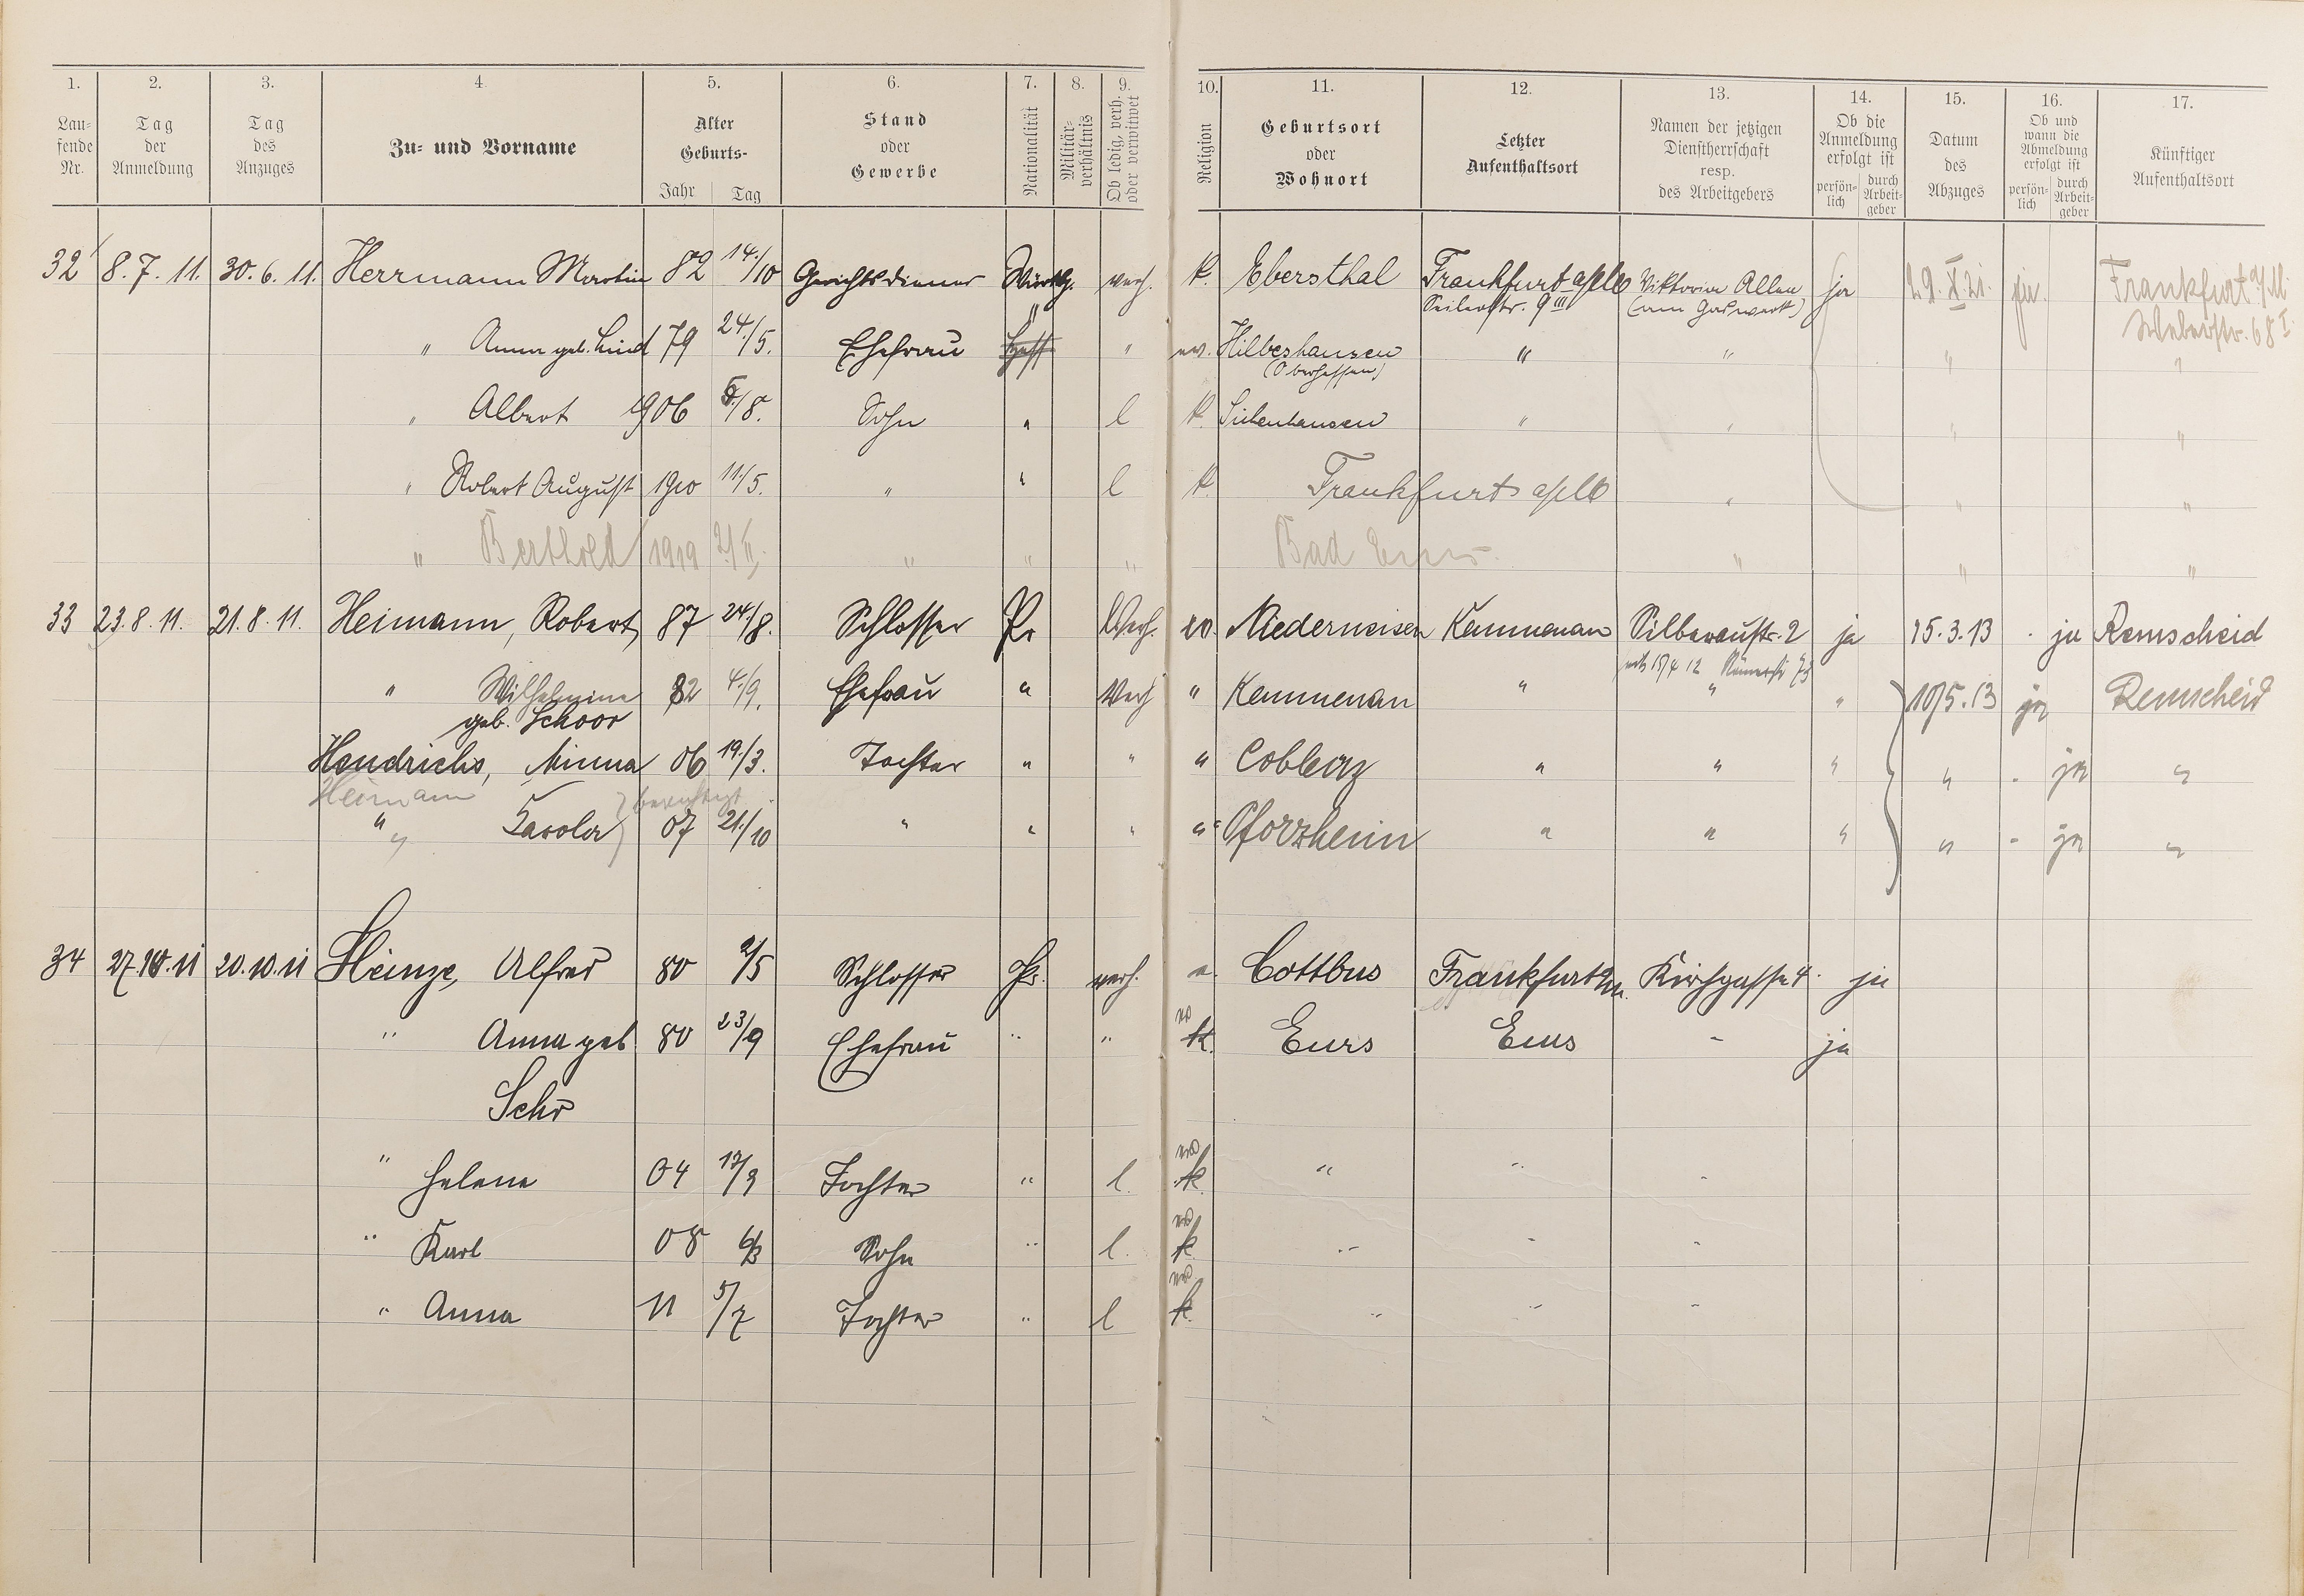 1. 2. 3. 4. 5. 6. 7. 8. 9. 10. 11. 12. 13. 14. 15. 16. 17.
Laufende Nr. | Tag der Anmeldung | Tag des Anzuges | Zu- und Vorname | Alter Geburts- Jahr | Tag | Stand oder Gewerbe | Nationalität | Militärverhältnis | Ob ledig, verh. oder verwitwet | Religion | Geburtsort oder Wohnort | Letzter Aufenthaltsort | Namen der jetzigen Dienstherrschaft resp. des Arbeitgebers | Ob die Anmeldung erfolgt ist persönlich | durch Arbeitgeber | Datum des Abzuges | Ob und wann die Abmeldung erfolgt ist persönlich | durch Arbeitgeber | Künftiger Aufenthaltsort
32 8.7.11. 30.6.11. Herrmann Martin 82 14./10 Gerichtsdiener Württbg. verh. k. Ebersthal Frankfurt a/M Viktoria Allee ja 29.X.21. ja. Frankfurt a/M.
Seilerstr. 9 III (am Gaswerk) Weberstr. 68 I
" Anna geb. Lind 79 24./5. Ehefrau " Hess " ev. Hilbeshausen " " " "
(Oberhessen)
" Albert 1906 5./8. Sohn " l k. " " " "
" Robert August 1910 11./5. " " l k. Frankfurt a/M " " "
" Berthold 1919 " " " Bad Ems. " " "
33 23.8.11. 21.8.11. Heimann, Robert 87 24./8. Schlosser Pr Verh. ev. Niederneisen Kemmenau Silberaustr. 2 ja 15.3.13 . ja Remscheid
Römerstr
" Wilhelmine 82 4./9. Ehefrau " Verh " Kemmenau " " " 10/5.13 ja Remscheid
geb. Schoor
Hendrichs, Minna 06 19./3. Tochter " " " Coblenz " " " " - ja "
Heimann } berichtigt
" " Carola 07 21./10 " " " " Pforzheim " " " " - ja "
34 27.10.11 20.10.11 Heinze, Alfred 80 2/5 Schlosser Pr. verh. e. Cottbus Frankfurt a/M. Kirchgasse 4. ja
" Anna geb 80 23/9 Ehefrau " " k. Ems Ems - ja
" Helene 04 Tochter " l. k. " " -
" Karl 08 6/3 Sohn " l. k. " " -
" Anna 11 5/7 Tochter " l k. " " -